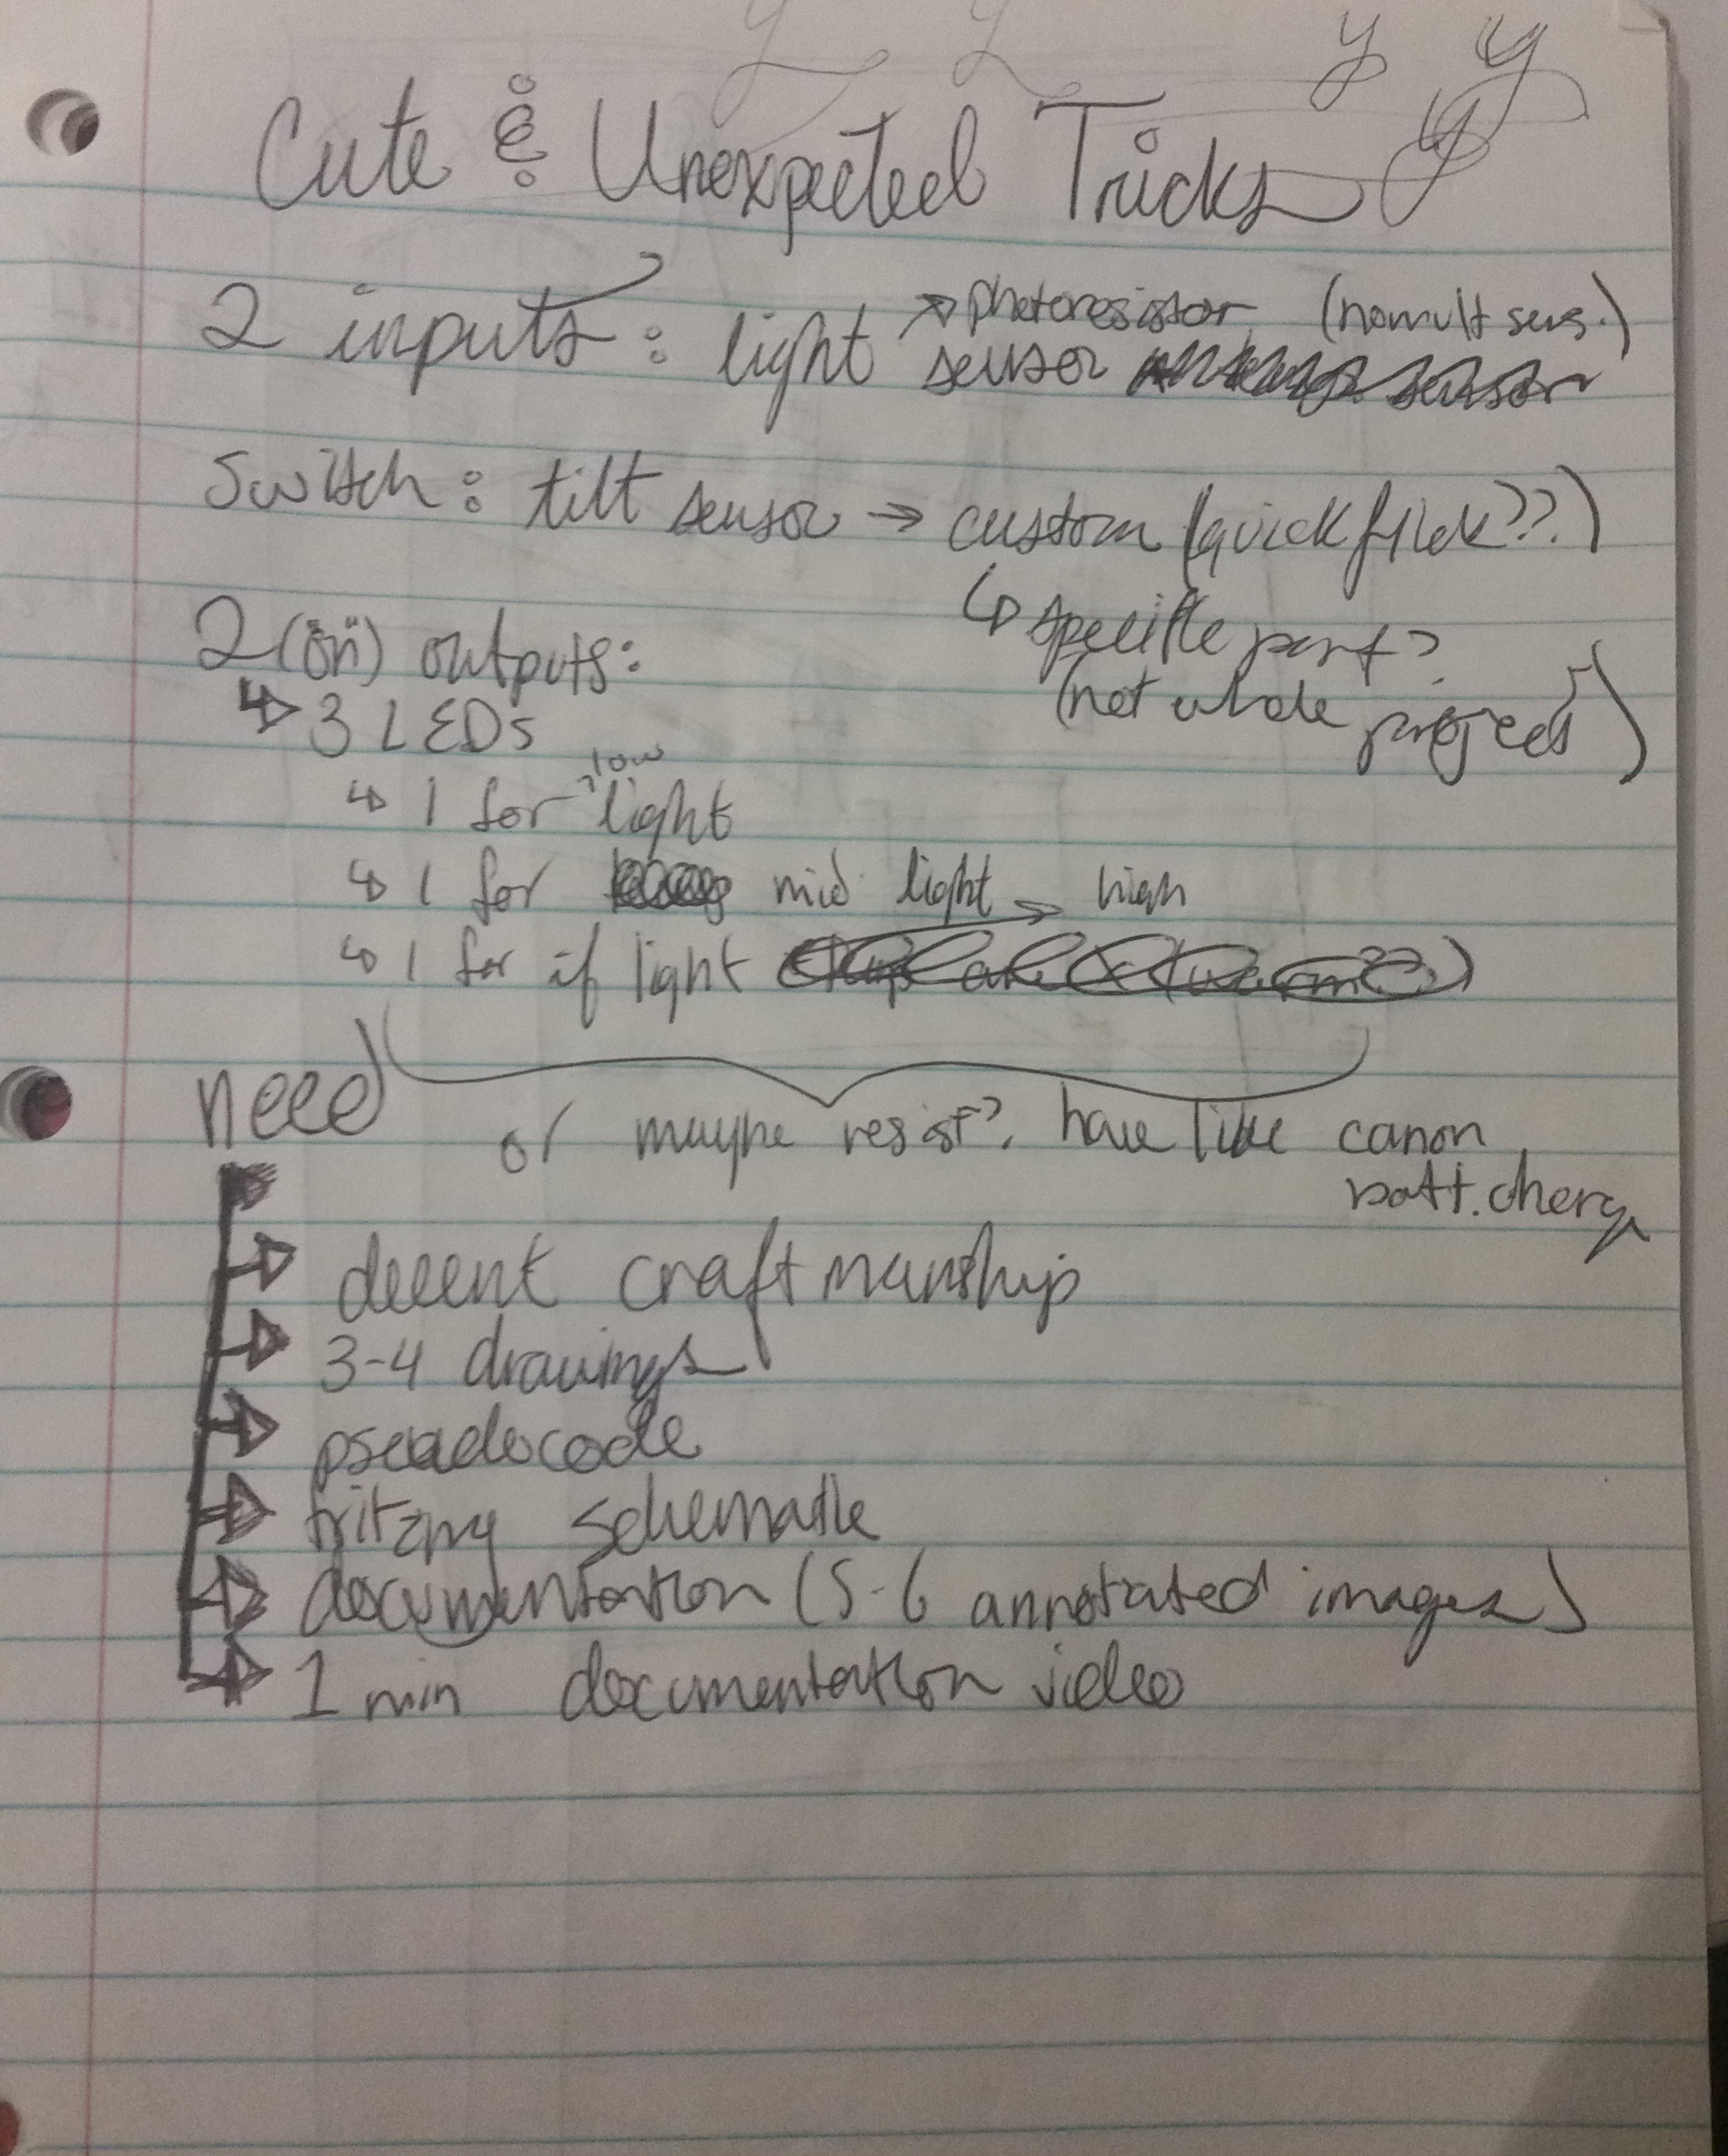 Y Y y y y
Cute & Unexpected Tricks
2 inputs: light sensor → photoresistor (no mult sens.)
Switch: tilt sensor → custom (quick flick??)
↳ specific part?
(not whole project)
2 (on) outputs:
↳ 3 LEDs
↳ 1 for low light
↳ 1 for mid light → high
↳ 1 for if light
or maybe resist? have like canon
batt. charg
need
decent craftmanship
3-4 drawings
pseudocode
fritzing schematic
documentation (5-6 annotated images)
1 min documentation video